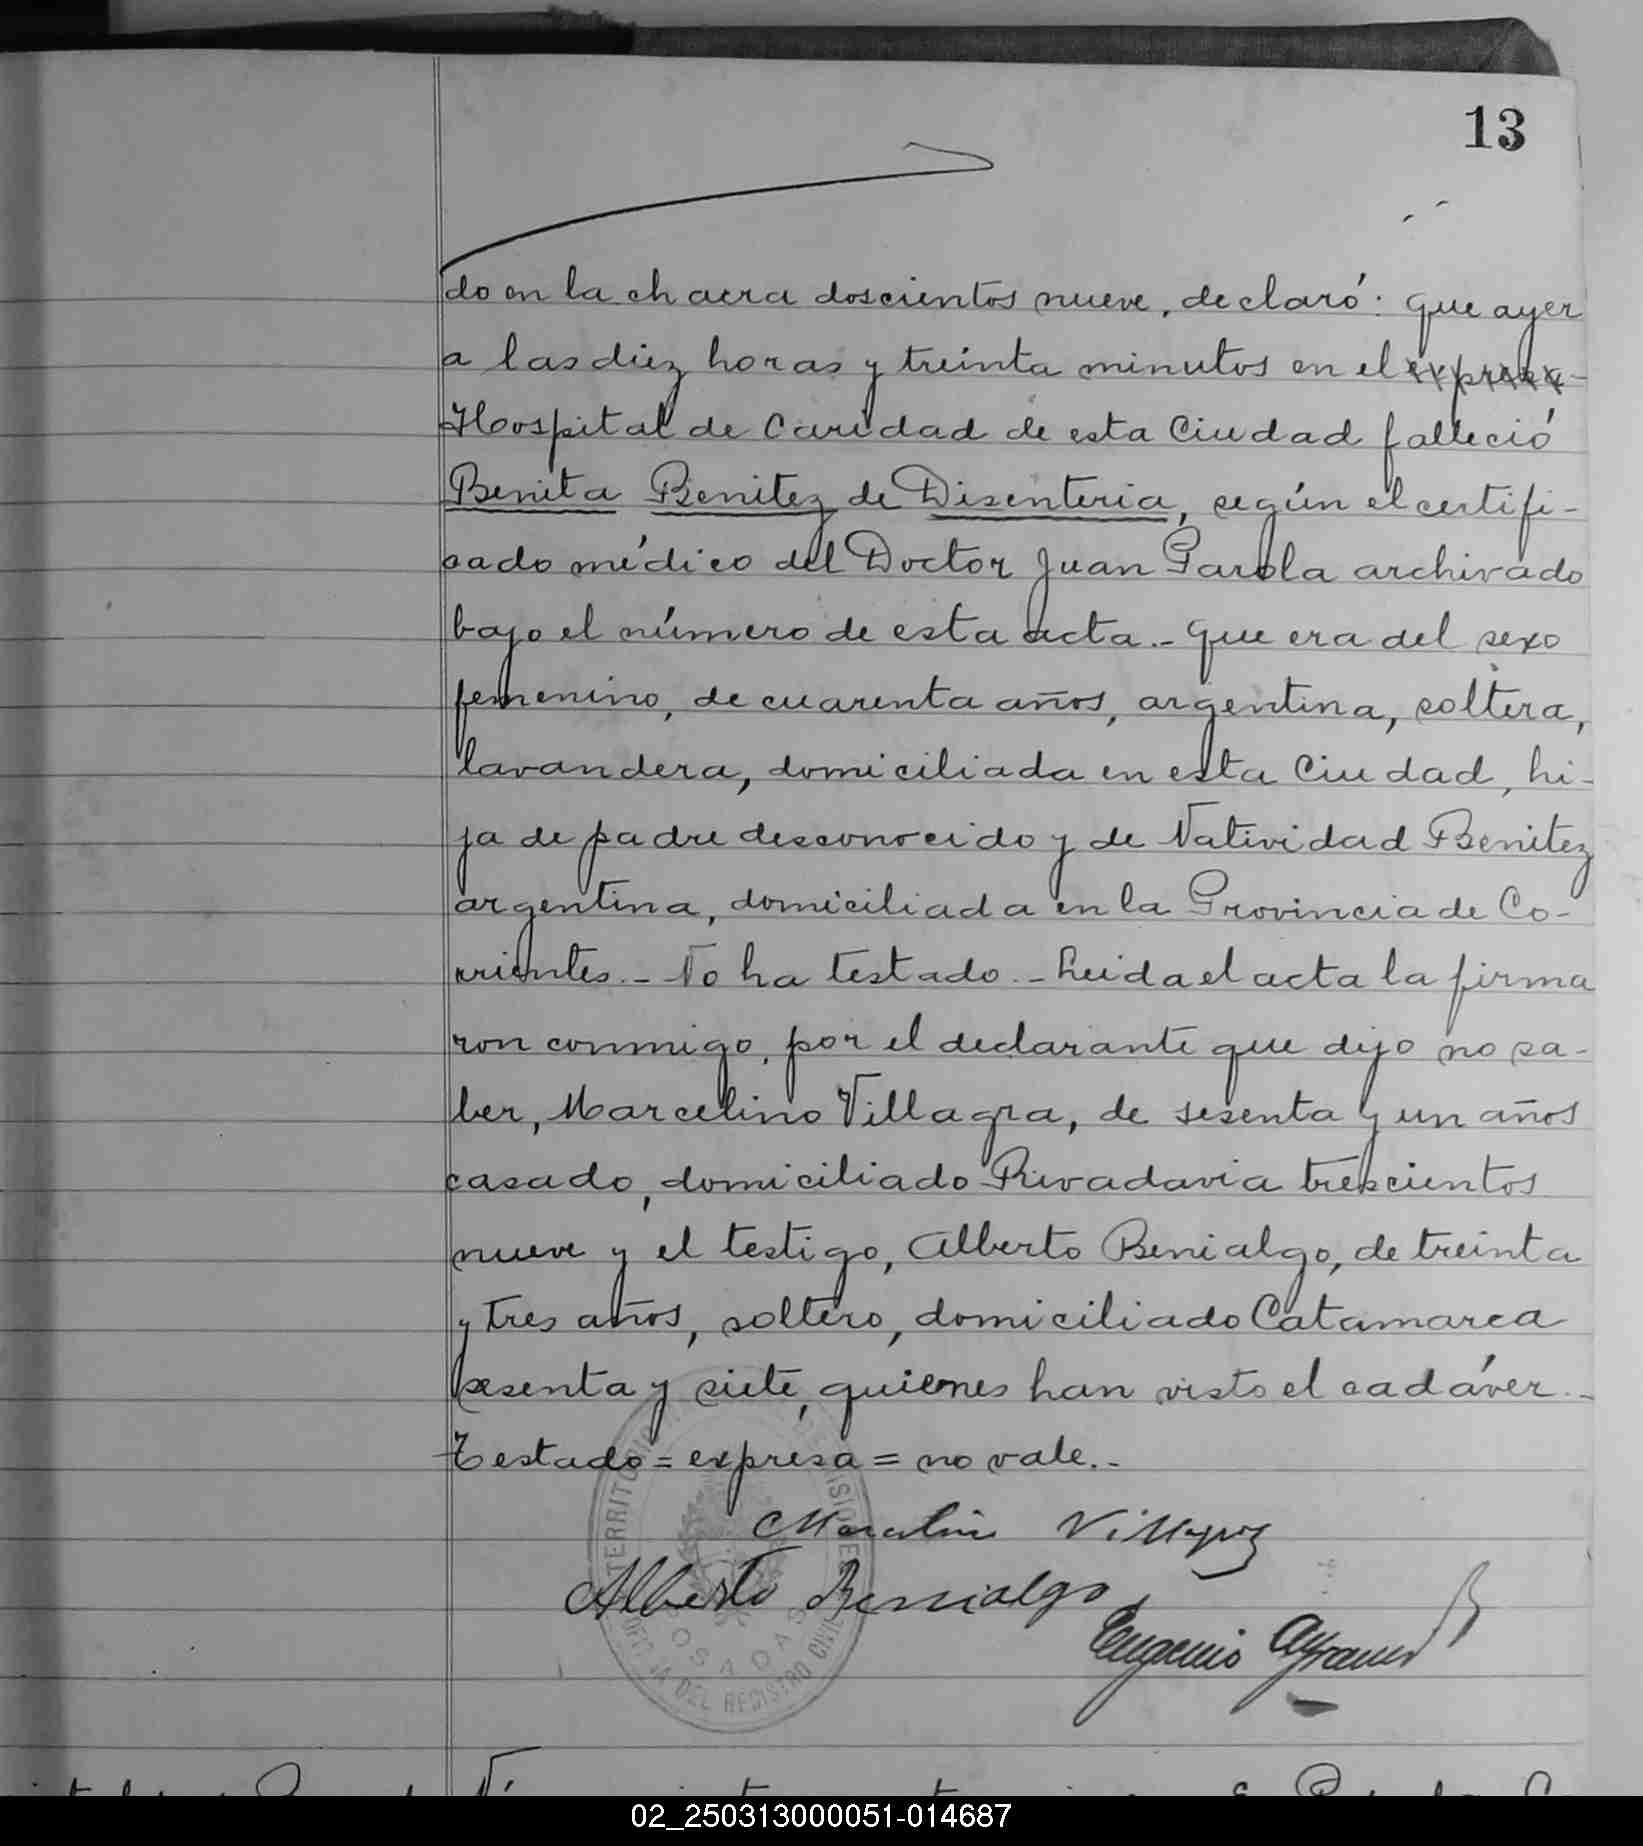 13
do en la chacra doscientos nueve, declaró: Que ayer
a las diez horas y treinta minutos en el expresa-
Hospital de Caridad de esta Ciudad falleció
Benita Benitez de Disenteria, según el certifi-
cado médico del Doctor Juan Parola archivado
bajo el número de esta acta.- Que era del sexo
femenino, de cuarenta años, argentina, soltera,
lavandera, domiciliada en esta Ciudad, hi-
ja de padre desconocido y de Natividad Benitez
argentina, domiciliada en la Provincia de Co-
rrientes.- No ha testado.- Leida el acta la firma
ron conmigo, por el declarante que dijo no sa-
ber, Marcelino Villagra, de sesenta y un años
casado, domiciliado Rivadavia trescientos
nueve y el testigo, Alberto Benialgo, de treinta
y tres años, soltero, domiciliado Catamarca
sesenta y siete, quienes han visto el cadáver.-
Testado = expresa = no vale.-
Marcelino Villagra
Alberto Benialgo
Eugenio
TERRITORIO
POSADAS
DEL REGISTRO CIVIL
02_250313000051-014687